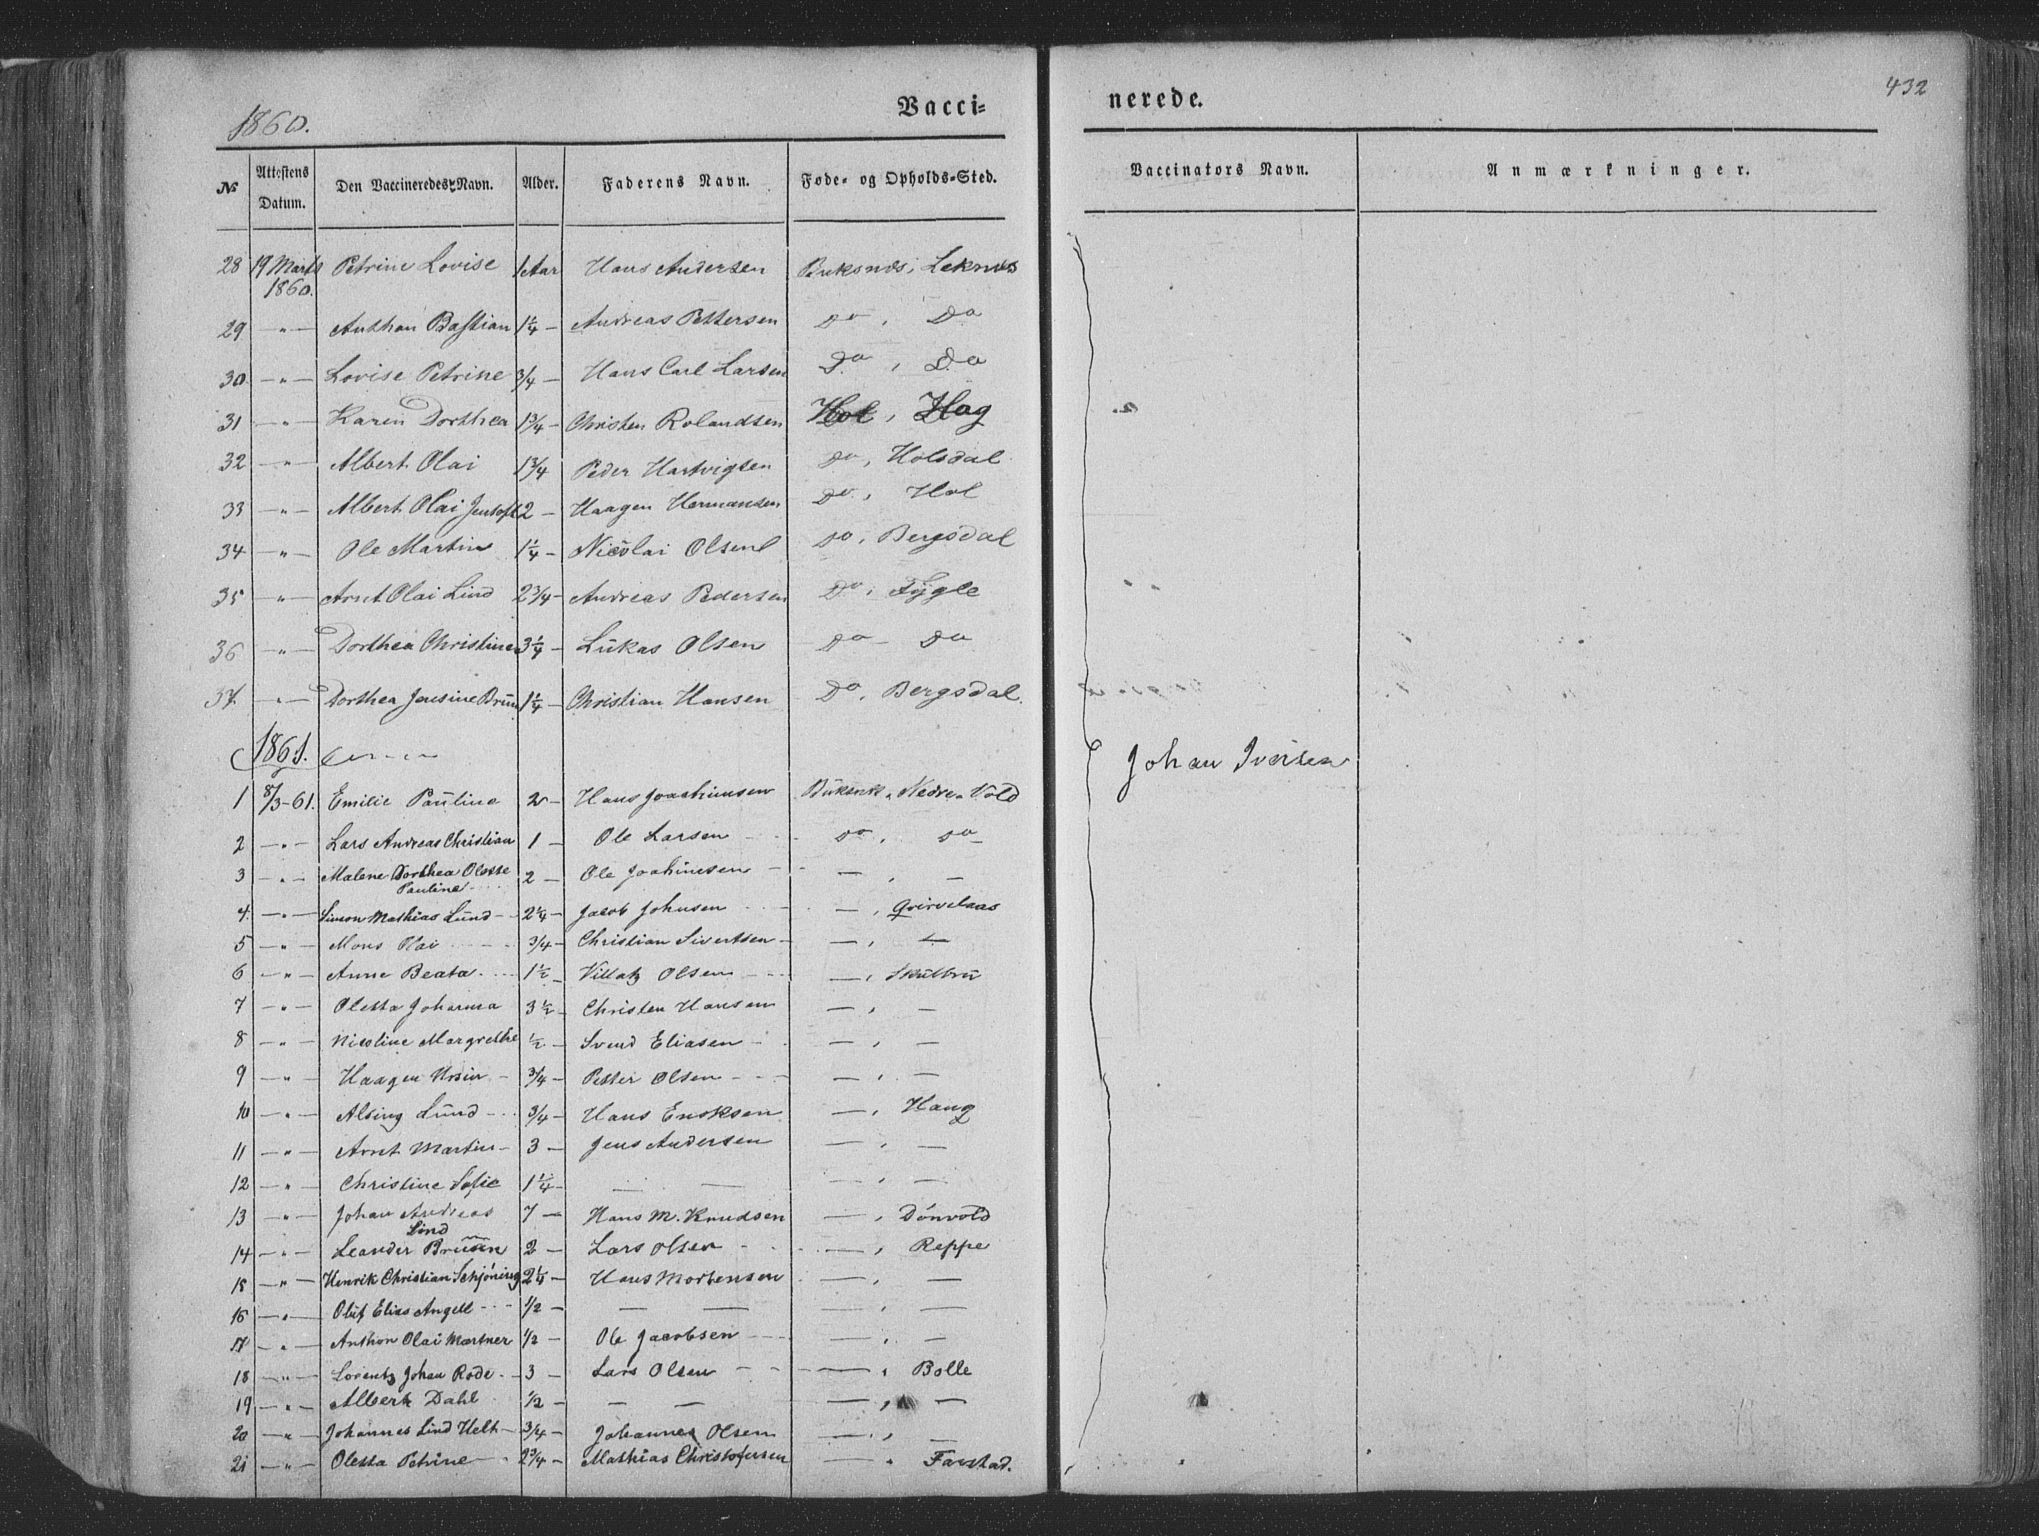 1860.
Vacci= nerede.
432
№ Attestens Datum. Den Vaccineredes Navn. Alder. Faderens Navn. Føde= og Opholds=Sted. Vaccinators Navn. Anmærkninger.
28 19 Marts 1860. Petrine Lovise 1 Aar Hans Andersen Buksnæs, Leknæs
29 -"- Anthon Bastian 1 1/4 - Andreas Pettersen Do, Do
30 -"- Lovise Petrine 3/4 - Hans Carl Larsen Do, Do
31 -"- Karen Dorthea 1 3/4 - Christen Rolandsen Hol, Hag
32 -"- Albert Olai 1 3/4 Peder Hartvigsen Do, Holsdal
33 -"- Albert Olai Jentoft 2 - Haagen Hermansen Do, Hol
34 -"- Ole Martin 1 1/4 - Nicolai Olsen Do, Bergsdal
35 -"- Arnt Olai Lind 2 3/4 - Andreas Pedersen Do, Fygle
36 -"- Dorthea Christine 3 1/4 - Lukas Olsen Do - Do
37. -"- Dorthea Jensine Bruun 1 1/4 - Christian Hansen Do, Bergsdal.
1861.
Johan Iversen
1 8/3-61. Emilie Pauline 2 - Hans Joachimsen Buksnæs, Nedre Vold
2 -"- Lars Andreas Christian 1 - Ole Larsen Do, Do
3 -"- Malene Dorthea Olette Pauline 2 - Ole Joakimsen - , -
4. -"- Simon Mathias Lund 2 1/4 - Jacob Johnsen - , Qvirvelaas
5 -"- Mons Olai 3/4 - Christian Sivertsen - , -
6 -"- Anne Beata 1 1/2 - Villatz Olsen - , Skulbru
7 -"- Oletta Johanna 3 1/2 - Christen Hansen - , -
8 -"- Nicoline Margrethe 1/2 - Svend Eliasen - , -
9 -"- Haagen Ursin 3/4 - Petter Olsen - , -
10 -"- Alsing Lund 3/4 - Hans Enoksen - , Haug
11 -"- Arnt Martin 3 - Jens Andersen - , -
12 -"- Christine Sofie 1 1/4 - - - - , -
13 -"- Johan Andreas Lind 7 - Hans M. Knudsen - , Dönvold
14 -"- Leander Bruun 2 - Lars Olsen - , Reppe
15 -"- Henrik Christian Schjöning 2 1/4 - Hans Mortensen - , -
16 -"- Oluf Elias Angell 1/2 - - - - , -
17 -"- Anthon Olai Mortner 1/2 - Ole Jacobsen - , -
18 -"- Lorentz Johan Rode 3 - Lars Olsen - , Bolle
19 -"- Albert Dahl 1/2 - - - - , -
20 -"- Johannes Lind Helt 3/4 - Johannes Olsen - , -
21 -"- Oletta Petrine 2 3/4 - Mathias Christofersen - , Farstad.